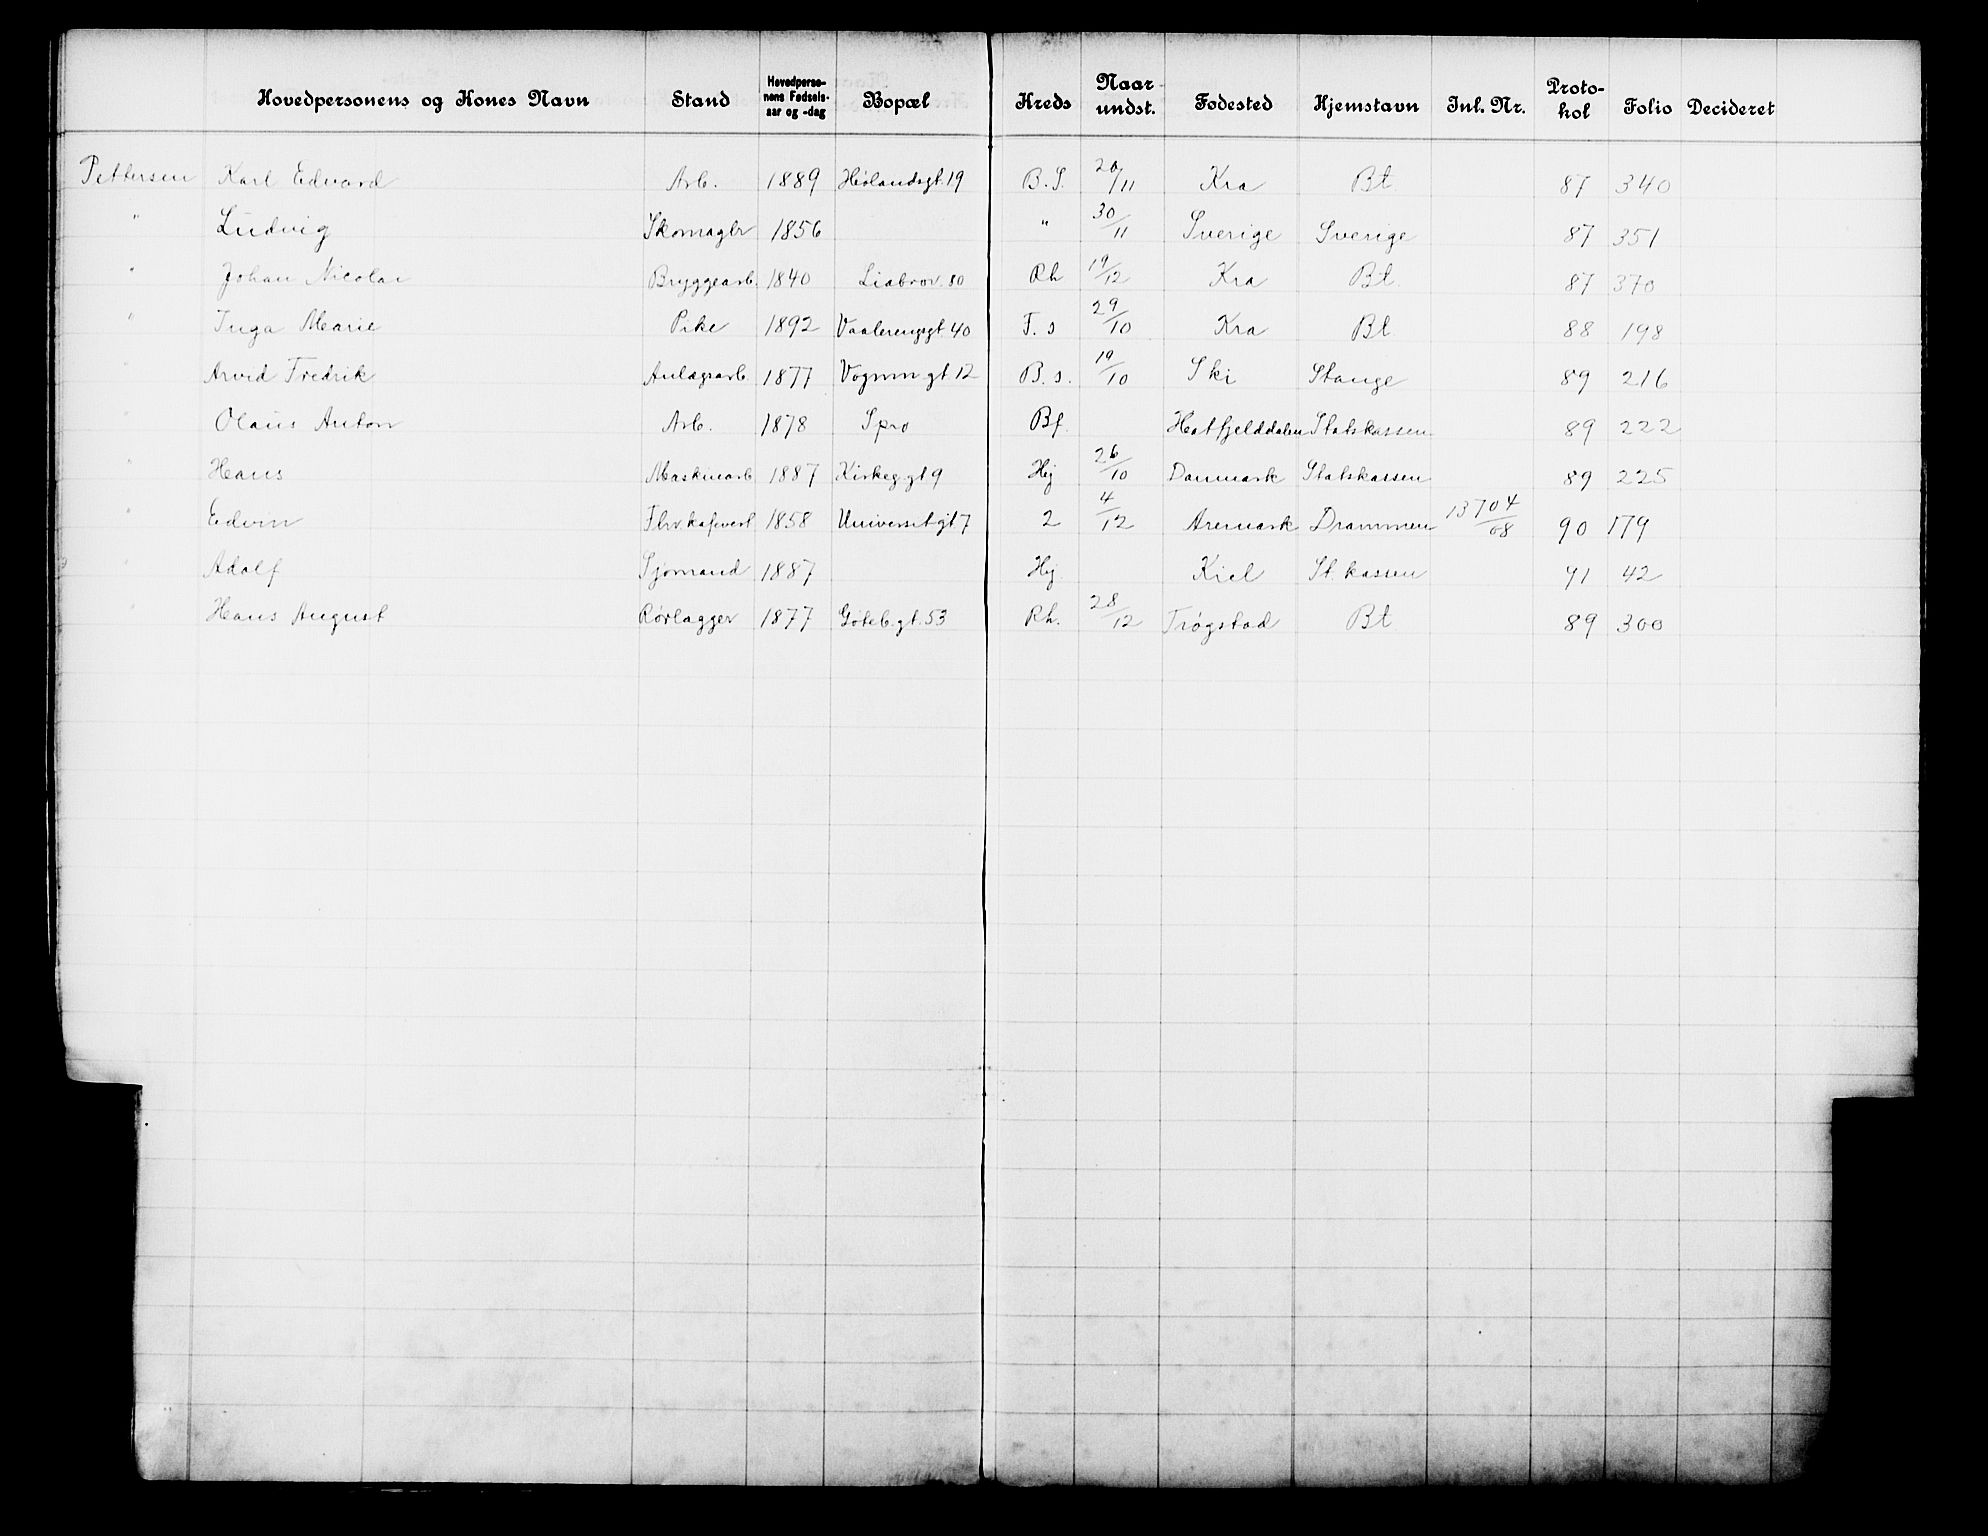 Hovedpersonens og Kones Navn Stand Hovedpersonens Fødsels-aar og -dag Bopæl Kreds Naar undst. Fødested Hjemstavn Inl. Nr. Protokol Folio Decideret
Pettersen Karl Edvard Arb. 1889 Hølandsgt. 19 B.S. 20/11 Kra Bt 87 340
" Ludvig Skomagbr 1856 " 30/11 Sverige Sverige 87 351
" Johan Nicolai Bryggearb. 1840 Liabrov. 80 Rh 19/12 Kra Bt. 87 370
" Inga Marie Pike 1892 Vaalerenggt. 40 F. s 29/10 Kra Bt 88 198
" Arvid Fredrik Anlægsarb. 1877 Vognm gt 12 B. s. 19/10 Ski Stange 89 216
" Olaus Anton Arb. 1878 Spro Bf. Hatfjelddalen Statskassen 89 222
" Hans Maskinarb 1887 Kirkeg.gt 9 Hej 26/10 Danmark Statskassen 89 225
" Edvin 1858 Universit.gt 7 2 4/12 Aremark Drammen 13704/08 90 179
" Adolf Sjømand 1887 Hej Kiel St. kassen 91 42
" Hans August Rørlægger 1877 Gøteb.gt. 53 Rh. 28/12 Trøgstad Bt 89 300